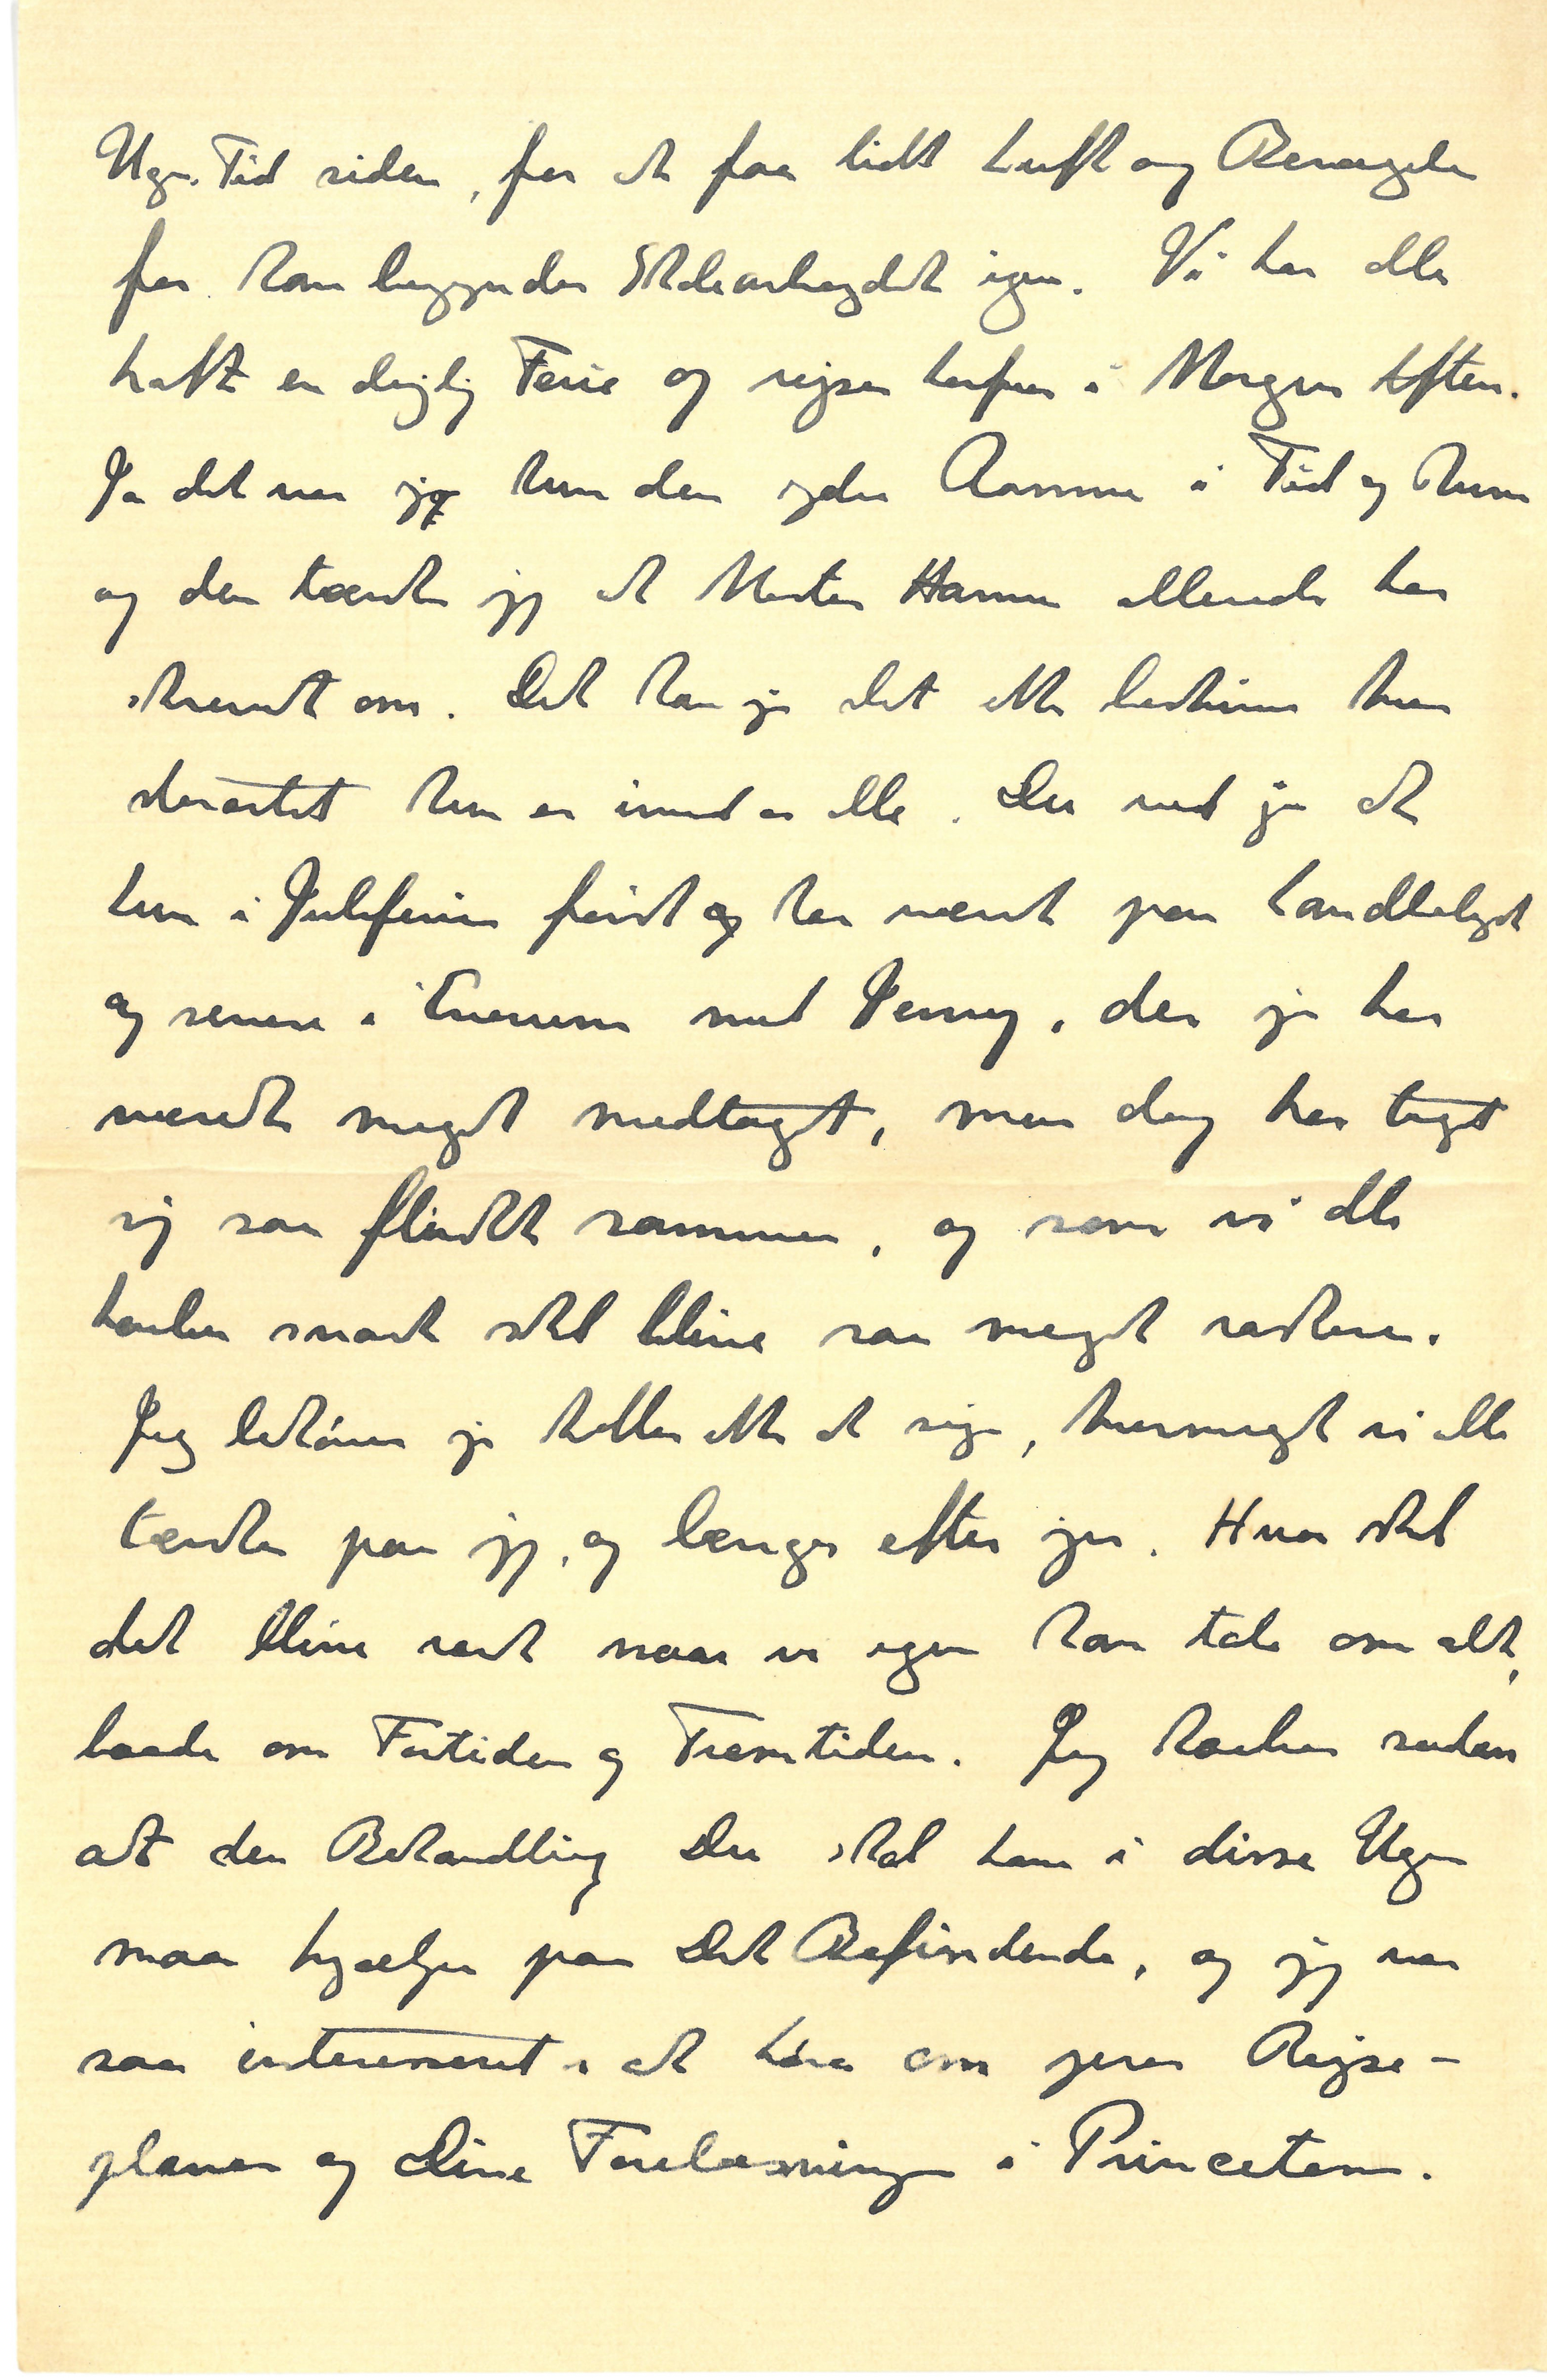 Uges Tid siden, for at faa lidt Luft og Bevægelse
før han begynder Skolearbejdet igen. Vi har alle
haft en dejlig Ferie og rejser herfra i Morgen Aften.
Ja det var jo kun den ydre Ramme i Tid og Rum
og den tænker jeg at Moster Hanna allerede har
skrevet om. Det kan jo slet ikke beskrives hvor
storartet hun er imod os alle. Du ved jo at
hun i Juleferien først har været paa Landkoleget
og senere i med Jenny, der jo har
været meget medtaget, men dog har taget
sig saa flinkt sammen, og som vi alle
haaber snart skal blive saa meget raskere.
Jeg behøver jo heller ikke at sige, hvormeget vi alle
tænker paa jer, og længes efter jer. Hvor skal
det blive rart naar vi igen kan tale om alt,
baade om Fortiden og Fremtiden. Jeg haaber saadan
at den Behandling Du skal have i disse Uger
maa hjælpe paa Dit Befindende, og jeg var
saa interesseret i at høre om jeres Rejse-
planer og Dine Forelæsninger i Princeton.